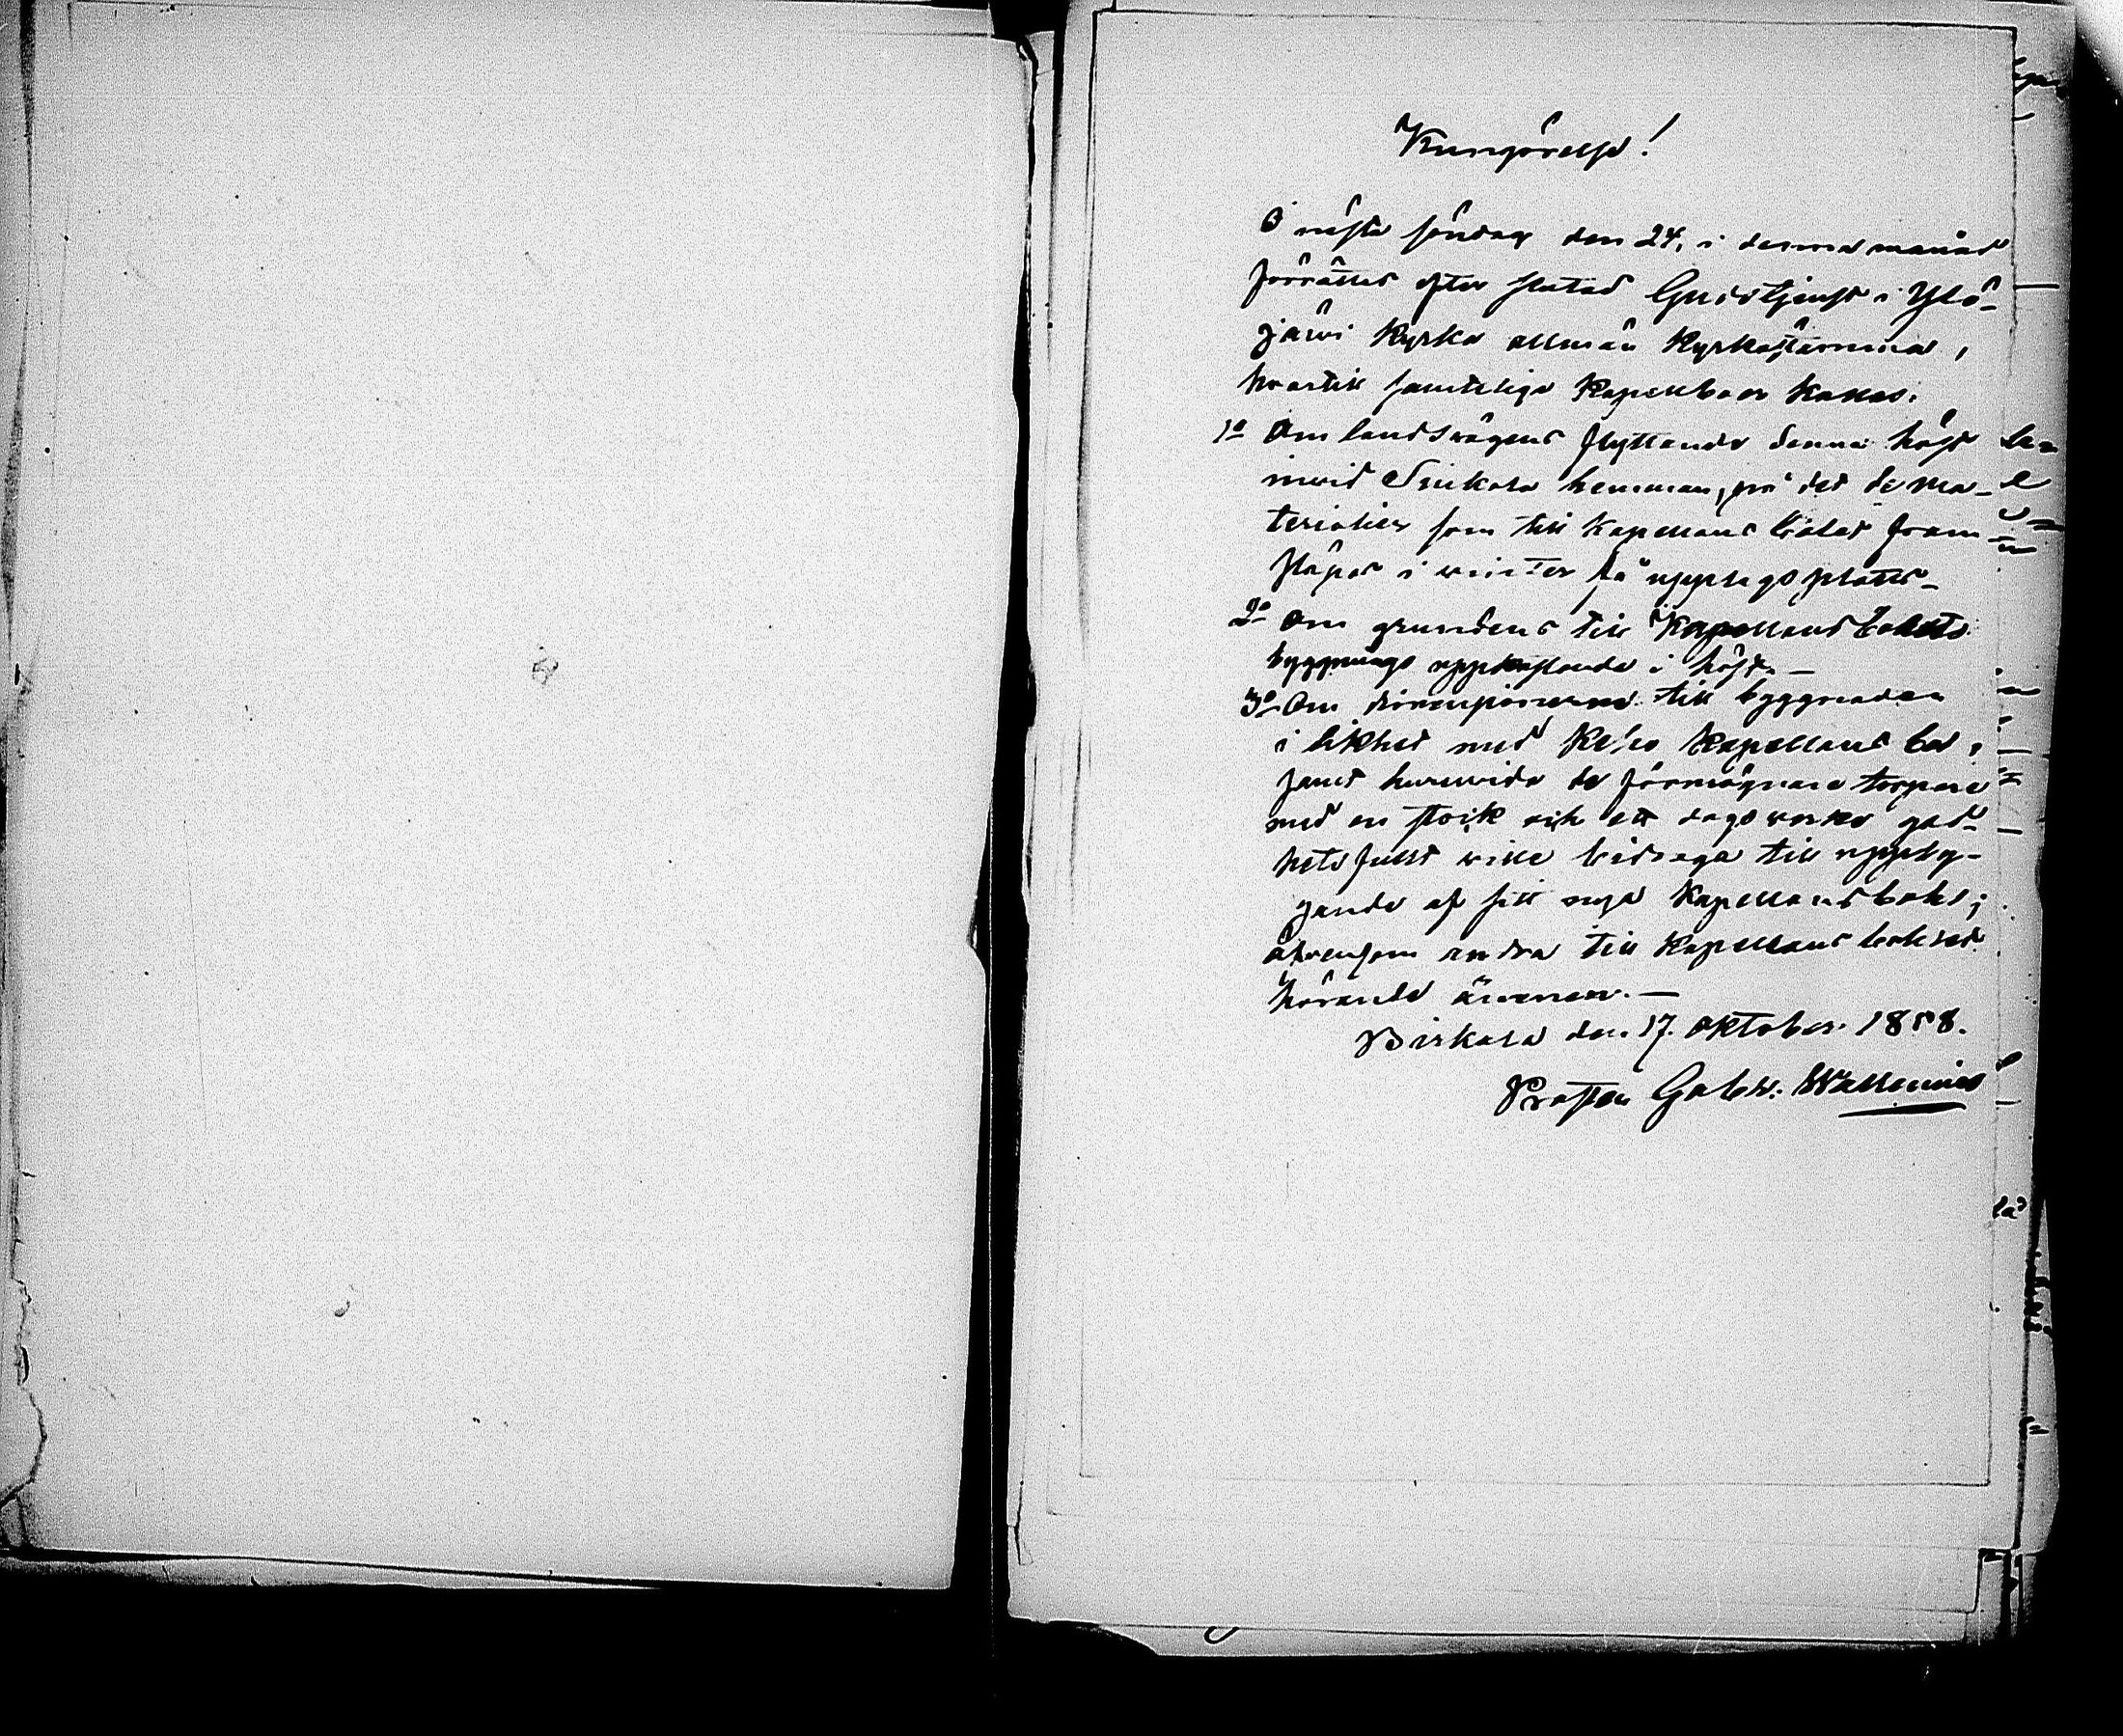 Kungörelse!
Å nästa söndag den 24. i denna månad
förrättas efter slutad Gudstjenst i Ylö-
järvi Kyrka allmän Kyrkostämma,
hvartill samteliga Kapellboer kallas.
1o Om landsvägens flyttande denna höst
invid hemman, på det de ma-
terialier som till Kapellans bolet fram
släpas i winter få upplagsplats-
2o Om grundens till Kapellansbolets
byggnings i höst.-
3o Om till byggnaden
i likhet med Kapellans bol,
samt huruvida de förmögnare torpare
med en stock och ett dagsverke god-
hetsfullt wille bidraga till uppbyg-
gande af sitt nya Kapellansbohl;
äfvensom andra till Kapellans bohlet
hörande ämnen.-
Birkala den 17. oktober 1858.
Prosten Gabr. Wallenius